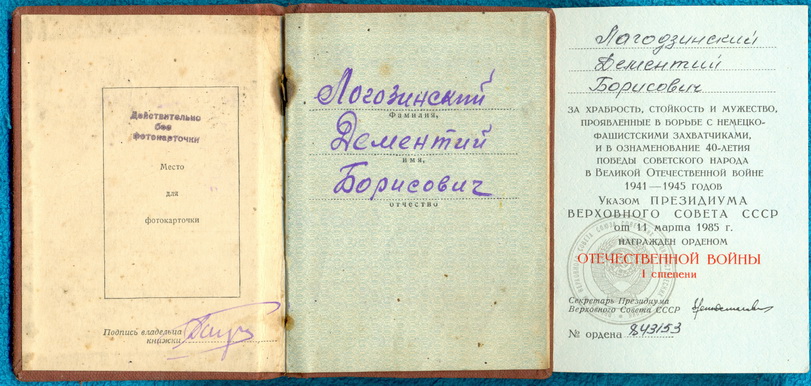 Действительно
без
фотокарточки
Место
для
фотокарточки
Подпись владельца
книжки
Логозинский
Фамилия,
Дементий
имя,
Борисович
отчество
Логодзинский
Дементий
Борисович
ЗА ХРАБРОСТЬ, СТОЙКОСТЬ И МУЖЕСТВО,
ПРОЯВЛЕННЫЕ В БОРЬБЕ С НЕМЕЦКО-
ФАШИСТСКИМИ ЗАХВАТЧИКАМИ,
И В ОЗНАМЕНОВАНИЕ 40-ЛЕТИЯ
ПОБЕДЫ СОВЕТСКОГО НАРОДА
В ВЕЛИКОЙ ОТЕЧЕСТВЕННОЙ ВОЙНЕ
1941—1945 ГОДОВ
УКАЗОМ ПРЕЗИДИУМА
ВЕРХОВНОГО СОВЕТА СССР
от 11 марта 1985 г.
НАГРАЖДЕН ОРДЕНОМ
ОТЕЧЕСТВЕННОЙ ВОЙНЫ
I степени
Секретарь Президиума
Верховного Совета СССР
№ ордена 843153